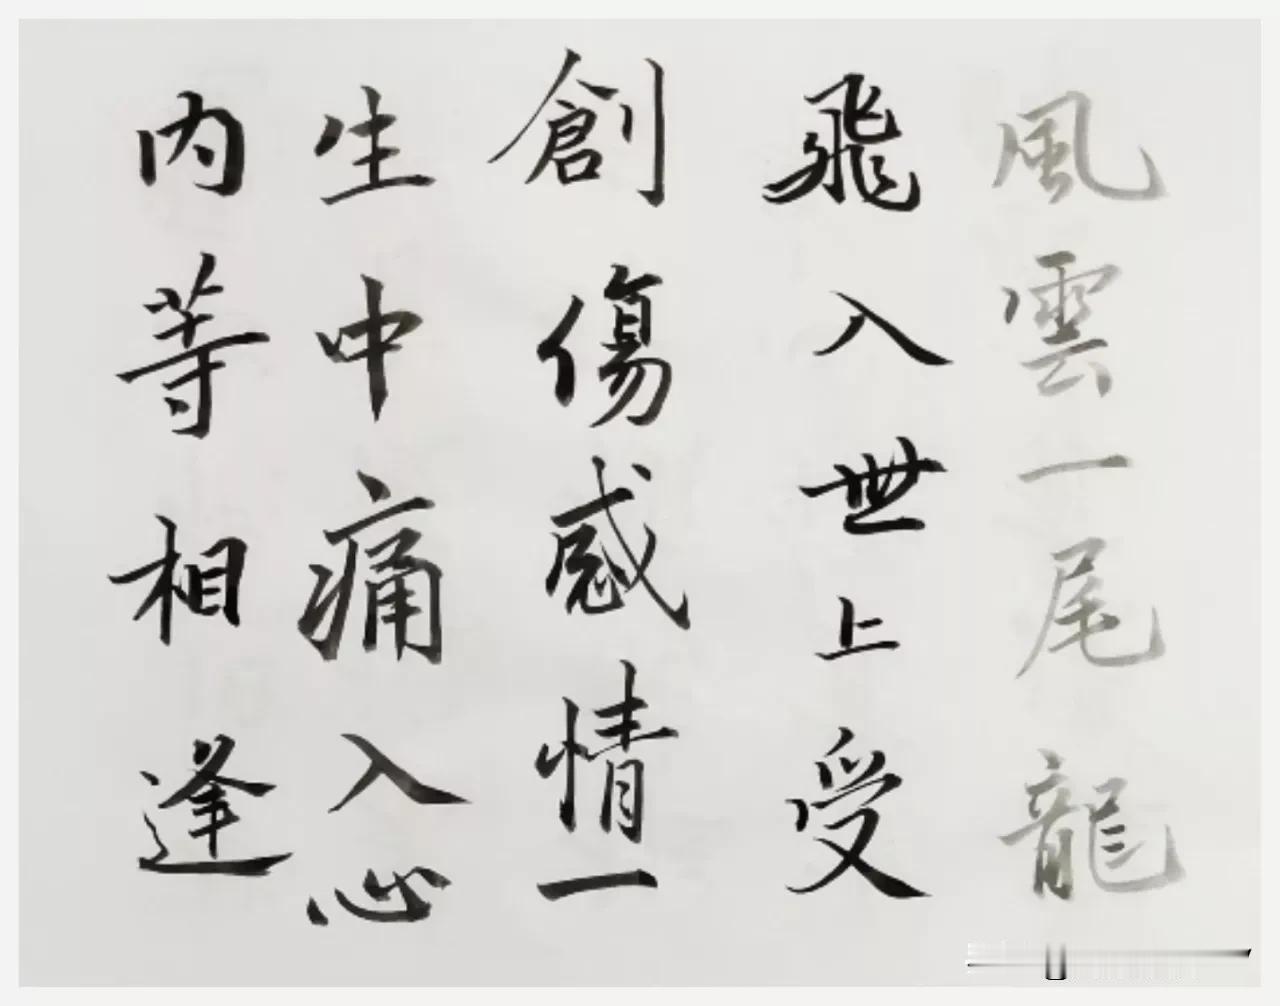 風雲一尾龍
飛入世上受
創傷感情一
生中痛入心
内等相逢